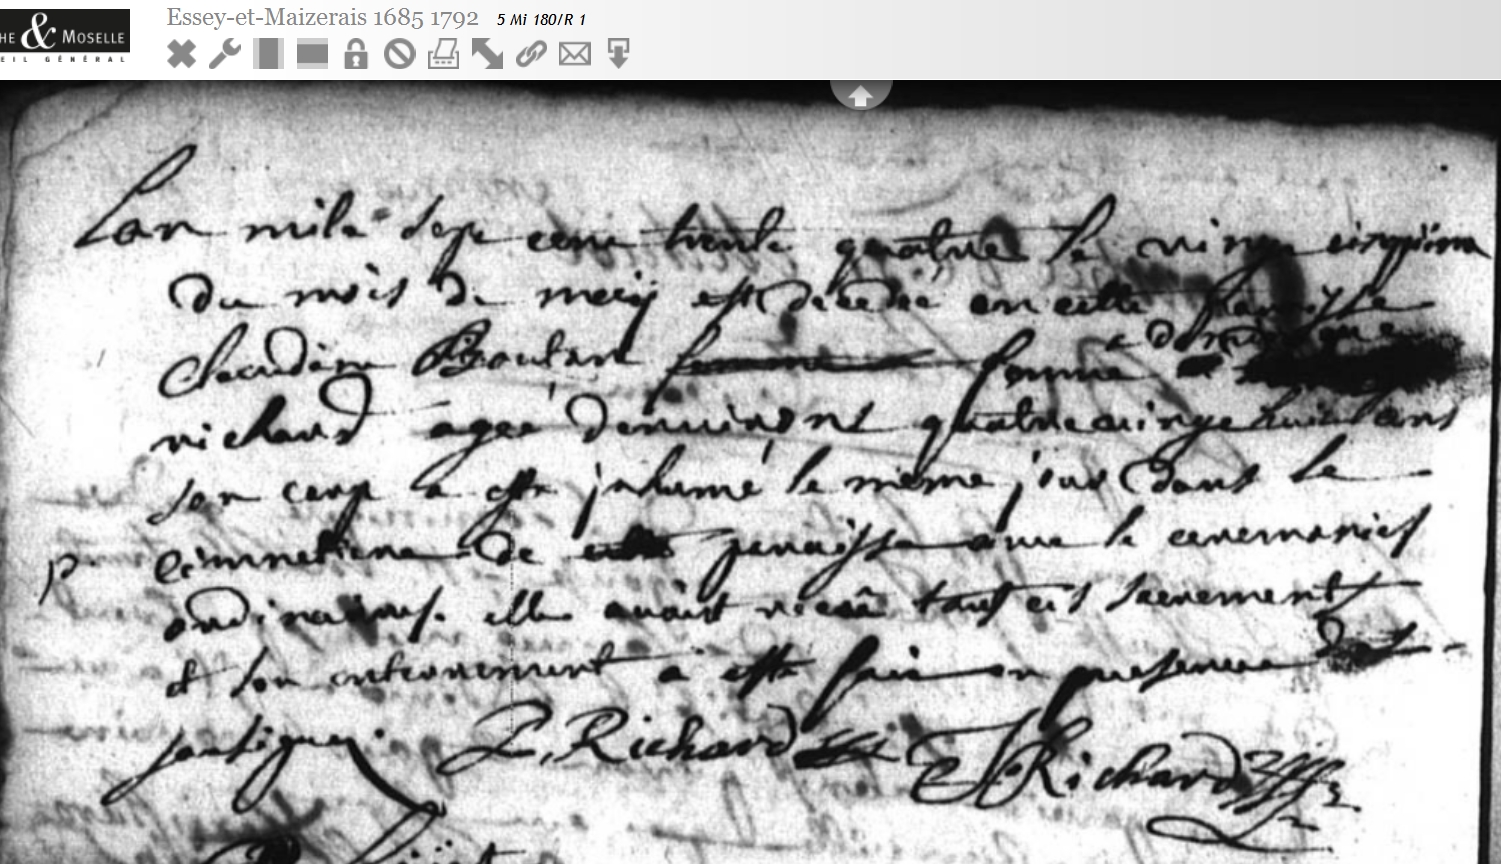 HE & MOSELLE
EIL GÉNÉRAL
Essey-et-Maizerais 1685 1792 5 Mi 180/R 1
Lan mile sept cent trente quattre le vingt cinquiem
du mois de mey est decedée en cette paroisse
Claudine femme femme a dominique
richard agée denviront quattrevingt huict ans
son corp a esté inhumé le même jour dans le
cimmetiere de cette paroisse avec le ceremonies
ordinaires. elle avoit receu tout ces sacrement
et son enterrement a esté fait en presence des
soussignez. Richard Richard